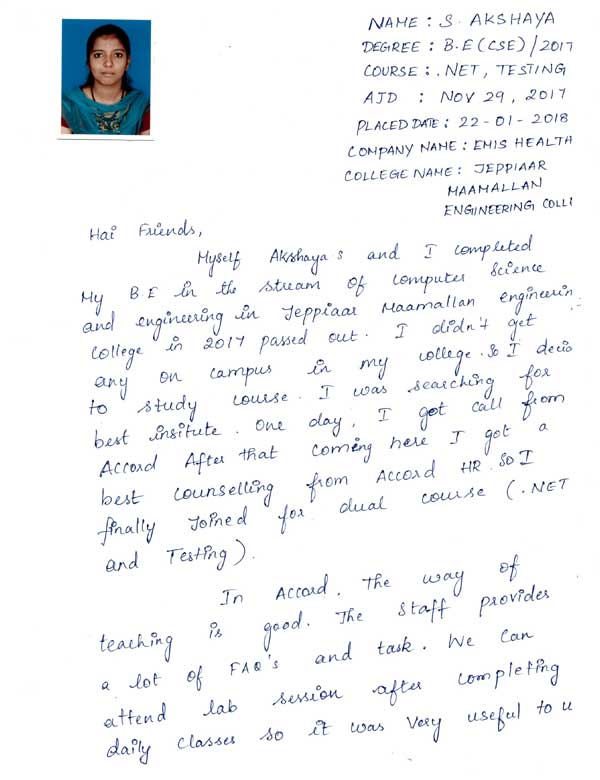 NAME : S. AKSHAYA
DEGREE : B.E (CSE) / 2017
COURSE : .NET, TESTING
AJD : NOV 29, 2017
PLACED DATE : 22-01-2018
COMPANY NAME : EMIS HEALTH
COLLEGE NAME : JEPPIAAR
MAAMALLAN
ENGINEERING COLL
Hai Friends,
Myself Akshaya s and I completed
My B.E in the stream of computer science
and engineering in Jeppiaar Maamallan engineerin
college in 2017 passed out. I didn't get
any on campus in my college. so I decid
to study course. I was searching for
best insitute. one day, I got call from
Accord After that coming here I got a
best counselling from Accord HR. so I
finally Joined for dual course (.NET
and Testing).
In Accord, the way of
teaching is good. The staff provides
a lot of FAQ's and task. We can
attend lab session after completing
daily classes so it was very useful to u